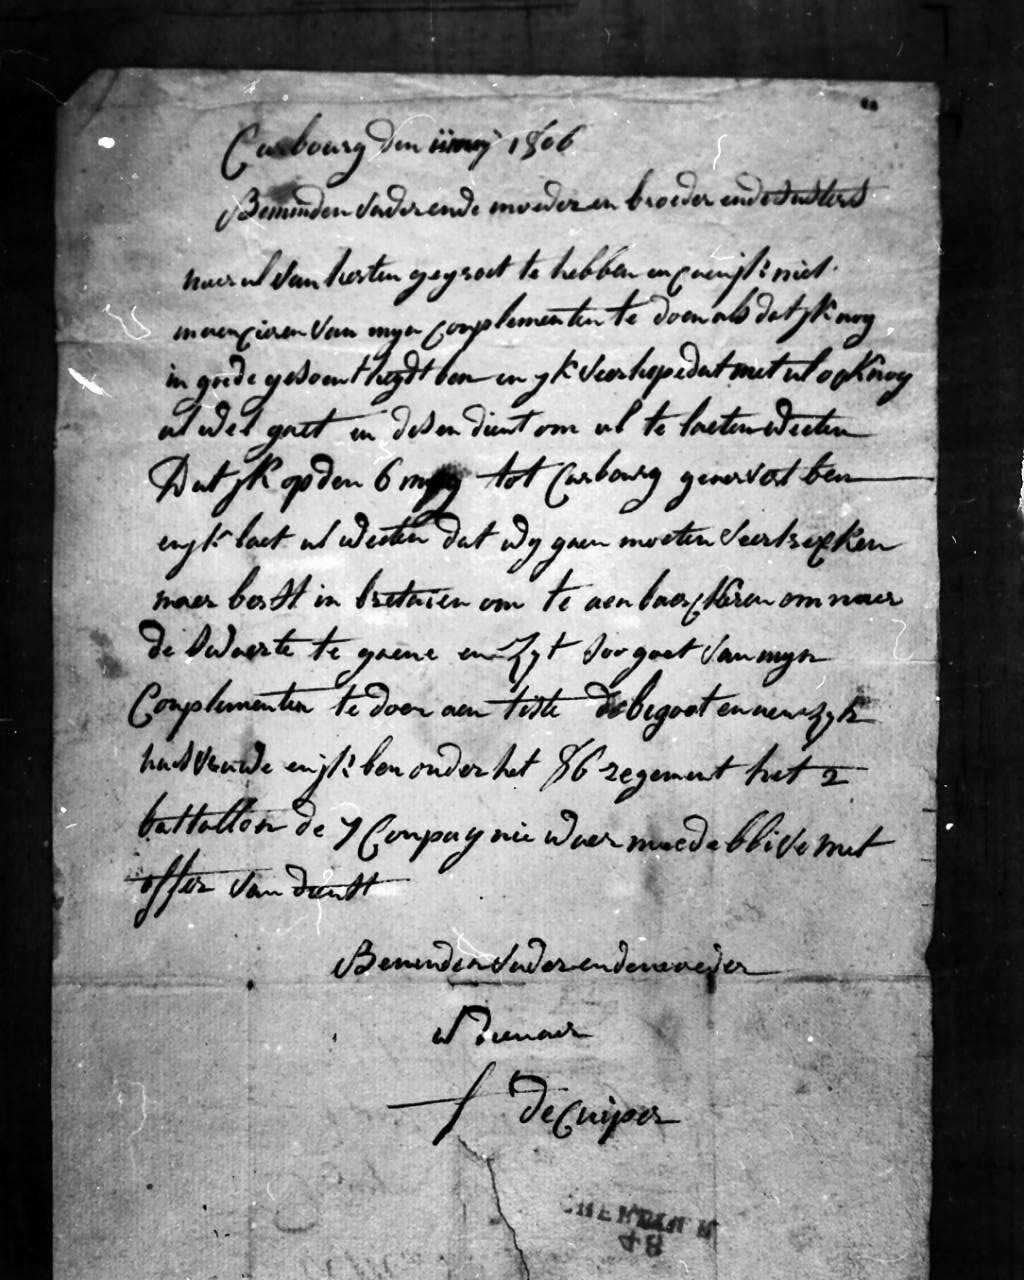 Carbourg den mey 1806
Beminden vader ende moeder en broeder ende susters
naer ul van herten gegroet te hebben en can jk niet
mancieren van myn Conplementen te doen als dat jk nog
in goede gesontheydt ben en yk veerhope dat met ul ook nog
al wel gaet en desen dient om ul te laeten weeten
Dat jk op den 6 mey tot Carbourg geariveert ben
en jk laet ul weeten dat wy gaen moeten veertrecken
naer berst in bretaien om te aenbaerckeren om naer
de waerte te gaene en zyt soo goet van myn
Conplementen te doen aen tiste debegoot en aen zyn
huisvrouwe en jk ben onder het 86 regement het 2
battallion de 7 Conpagnie waer mede blive met
offer van dienst
Beminden vader ende moeder
ul dienaer
f de Cuiper
48